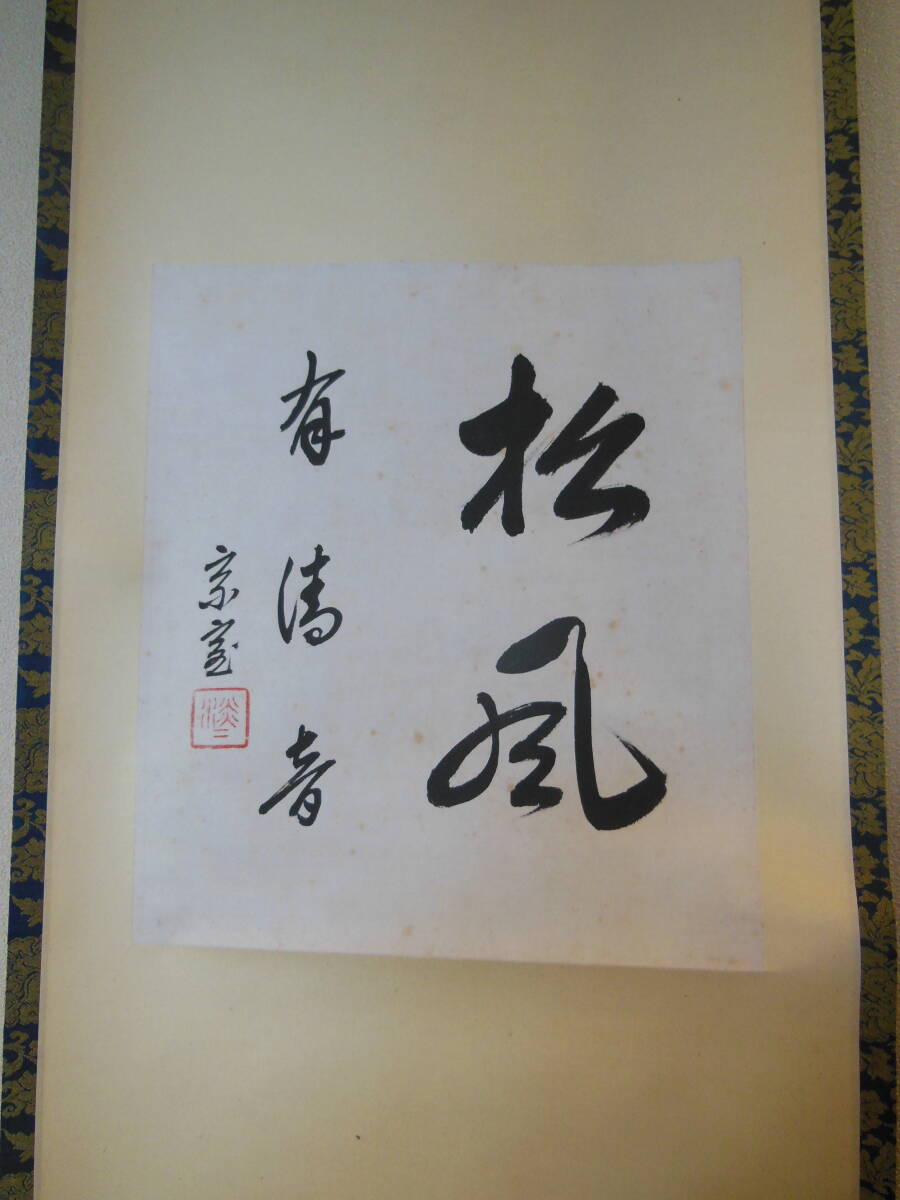 松風
有清音
宗室